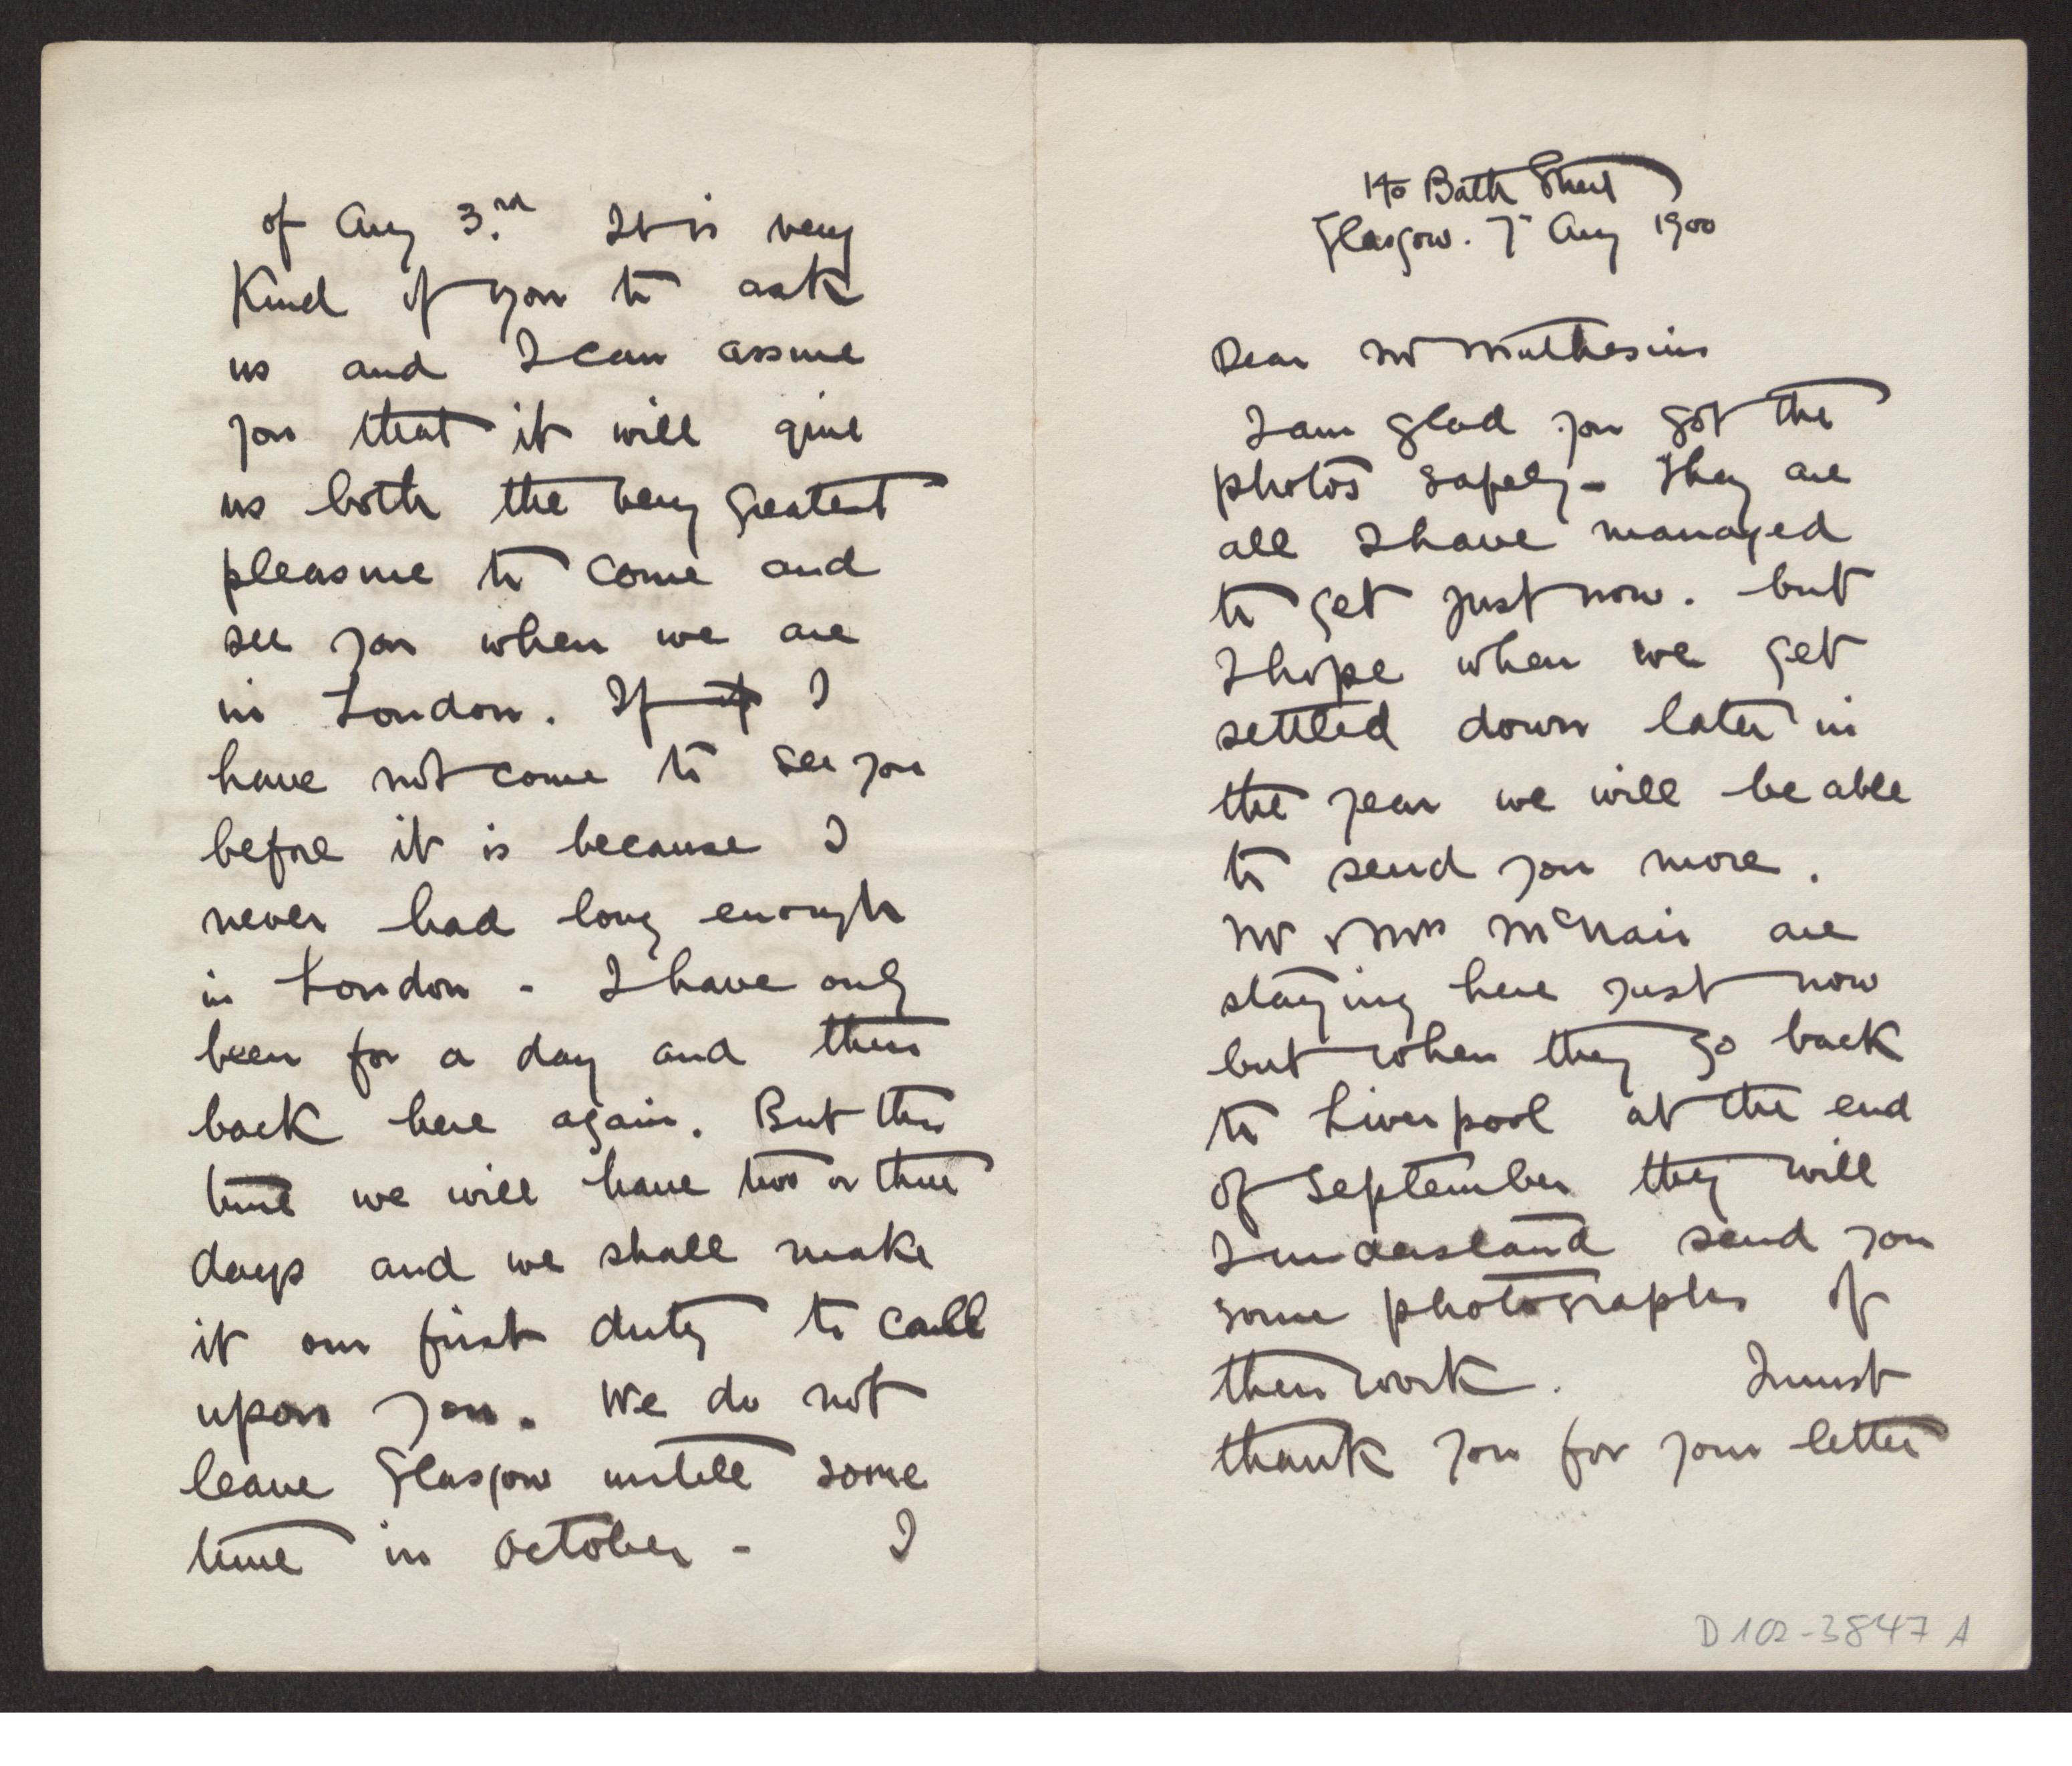 140 Bath Street
Glasgow. 7th Aug 1900
Dear Mr Muthesius
I am glad you got the
photos safely - They are
all I have managed
to get just now. but
I hope when we get
settled down later in
the year we will be able
to send you more.
Mr & Mrs McNair are
staying here just now
but when they go back
to Liverpool at the end
of September they will
I understand send you
some photographs of
their work. I must
thank you for your letter
D 102-3847 A
of Aug 3.rd It is very
Kind of you to ask
us and I can assure
you that it will give
us both the very greatest
pleasure to come and
see you when we are
in London. If it I
have not come to see you
before it is because I
never had long enough
in London - I have only
been for a day and then
back here again. But this
time we will have two or three
days and we shall make
it our first duty to call
upon you. We do not
leave Glasgow untill some
time in October - I